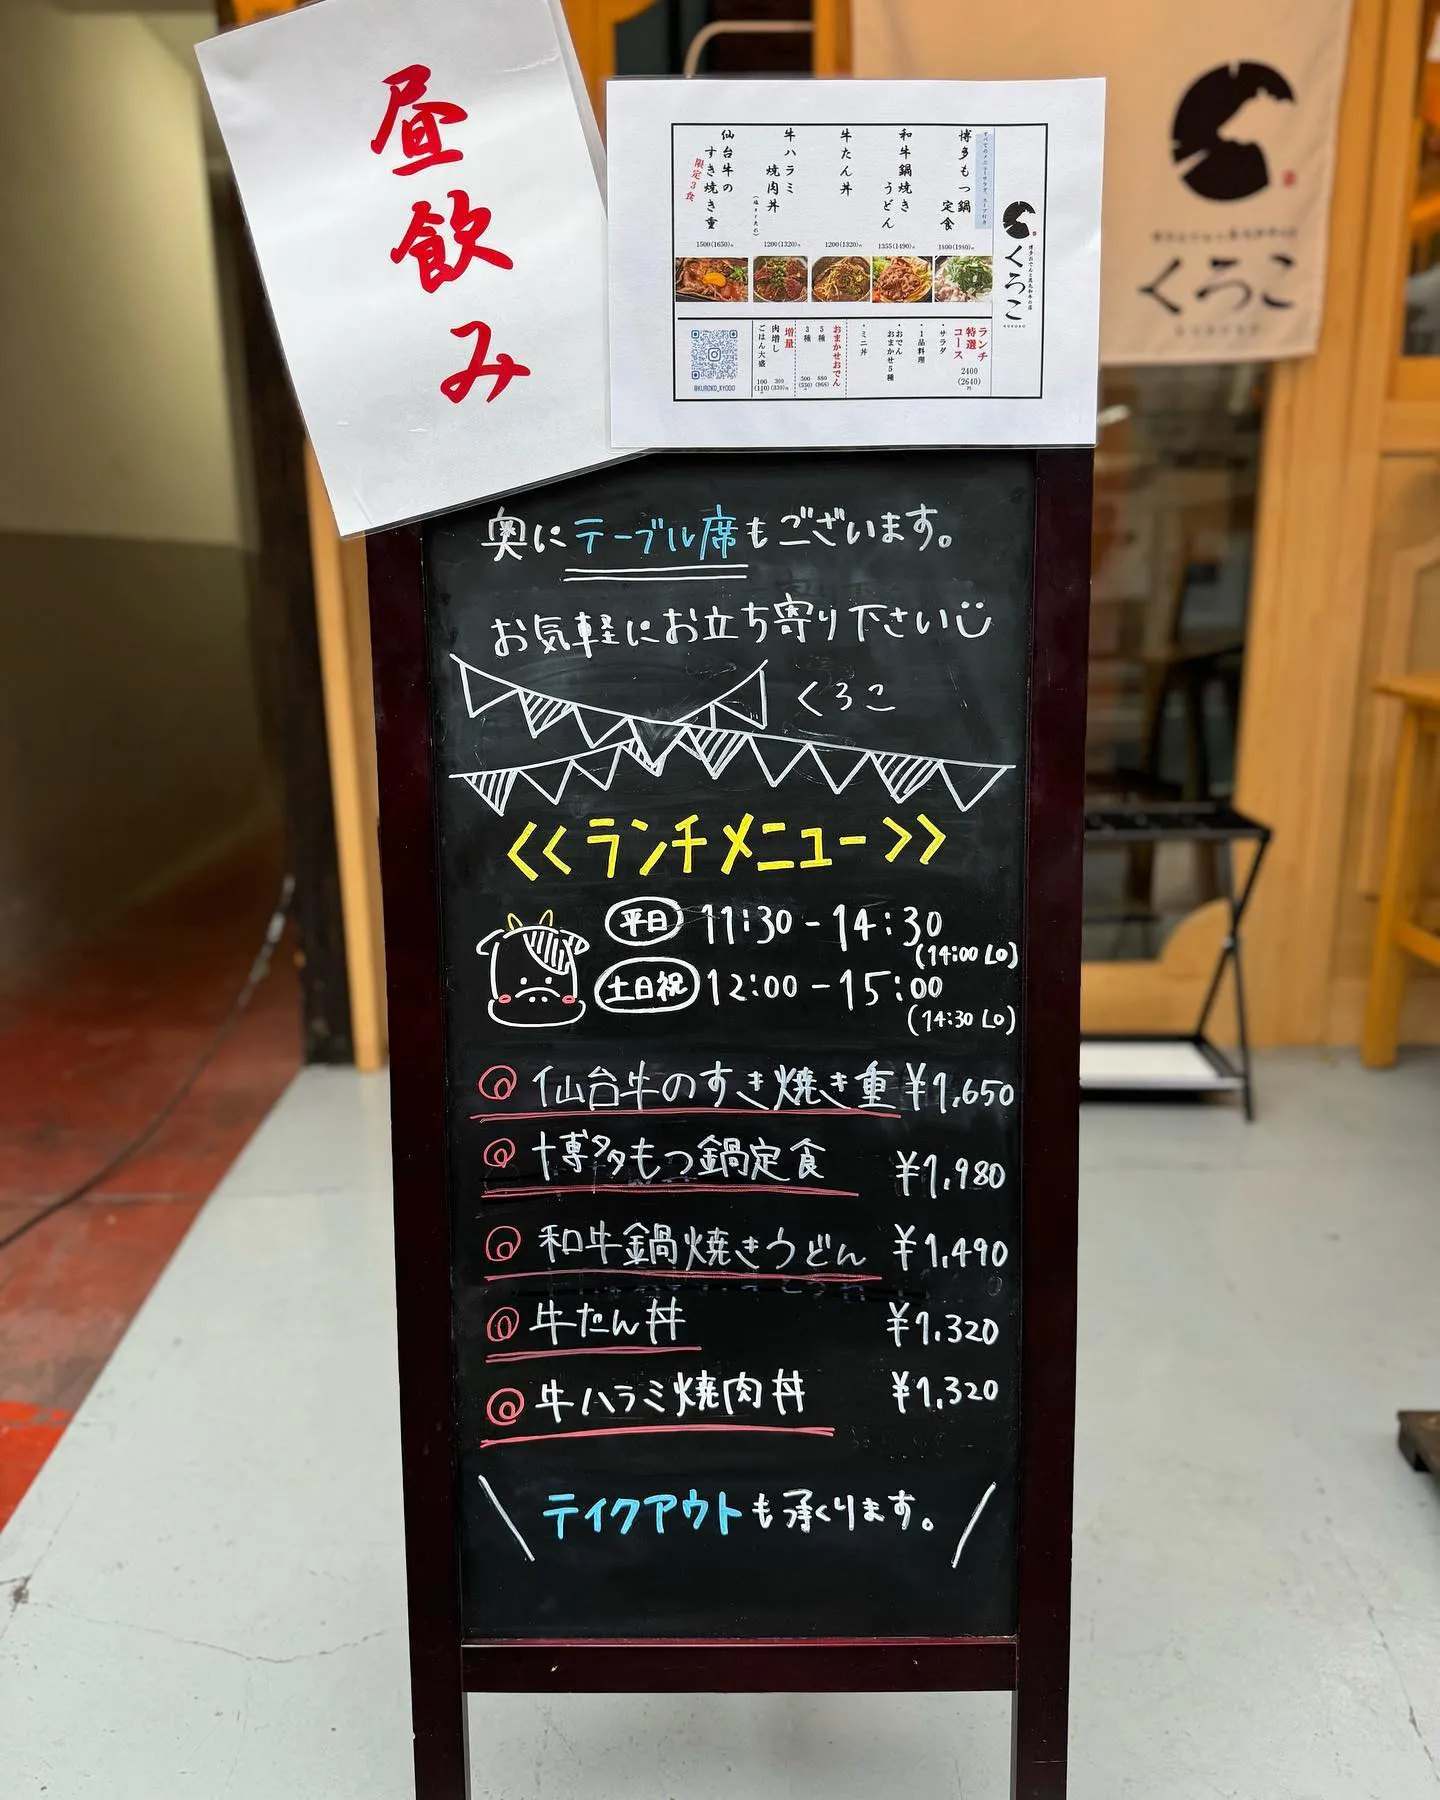 昼飲み
くろこ
博多おでんと黒毛和牛の店
くろこ
KUROKO
すべてのメニューサラダ、スープ付き
博多もつ鍋定食
1800(1980)円
和牛鍋焼きうどん
1355(1490)円
牛たん丼
1200(1320)円
牛ハラミ焼肉丼
1200(1320)円
仙台牛のすき焼き重
限定3食
1500(1650)円
ランチ特選コース
2400
(2640)
円
・サラダ
・1品料理
・おでん
おまかせ5種
・ミニ丼
おまかせおでん
5種 880(968)
3種 500(550)
増量
肉増し 300(330)円
ごはん大盛 100(110)
@KUROKO_KYODO
奥にテーブル席もございます。
お気軽にお立ち寄り下さい
くろこ
<<ランチメニュー>>
平日 11:30-14:30
(14:00 LO)
土日祝 12:00-15:00
(14:30 LO)
◎ 仙台牛のすき焼き重 ¥1,650
◎ 博多もつ鍋定食 ¥1,980
◎ 和牛鍋焼きうどん ¥1,490
◎ 牛たん丼 ¥1,320
◎ 牛ハラミ焼肉丼 ¥1,320
\ テイクアウトも承くります。 /